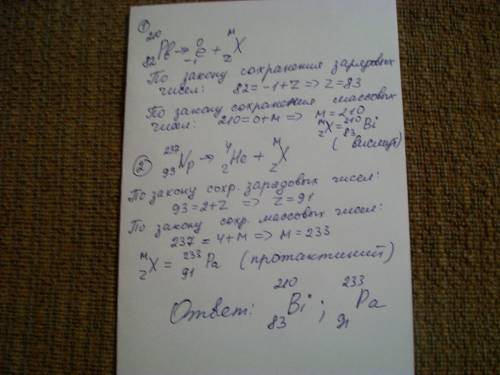 ①
²¹⁰₈₂Pb → ⁰₋₁e + ᴹ_Z X
По закону сохранения зарядовых
чисел: 82 = -1 + Z => Z = 83
По закону сохранения массовых
чисел: 210 = 0 + M => M = 210
ᴹ_Z X = ²¹⁰₈₃Bi
(висмут)
② ²³⁷₉₃Np → ⁴₂He + ᴹ_Z X
По закону сохр. зарядовых чисел:
93 = 2 + Z => Z = 91
По закону сохр. массовых чисел:
237 = 4 + M => M = 233
ᴹ_Z X = ²³³₉₁Pa (протактиний)
Ответ: ²¹⁰₈₃Bi ; ²³³₉₁Pa